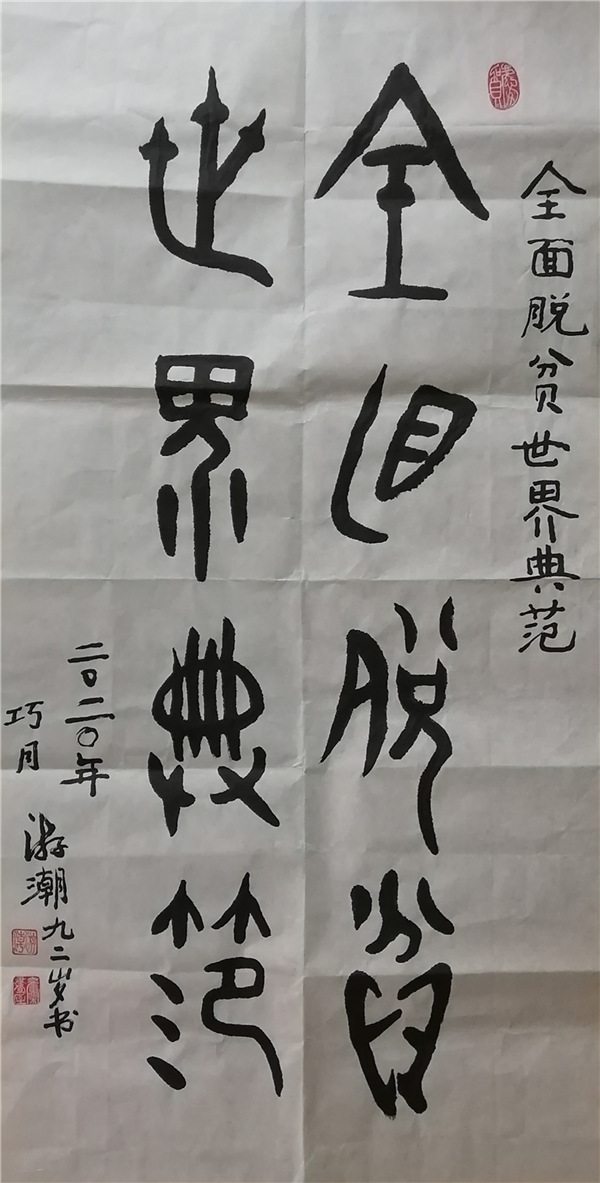 全面脱贫世界典范
全面脱贫
世界典范
二〇二〇年
巧月
游潮九二岁书